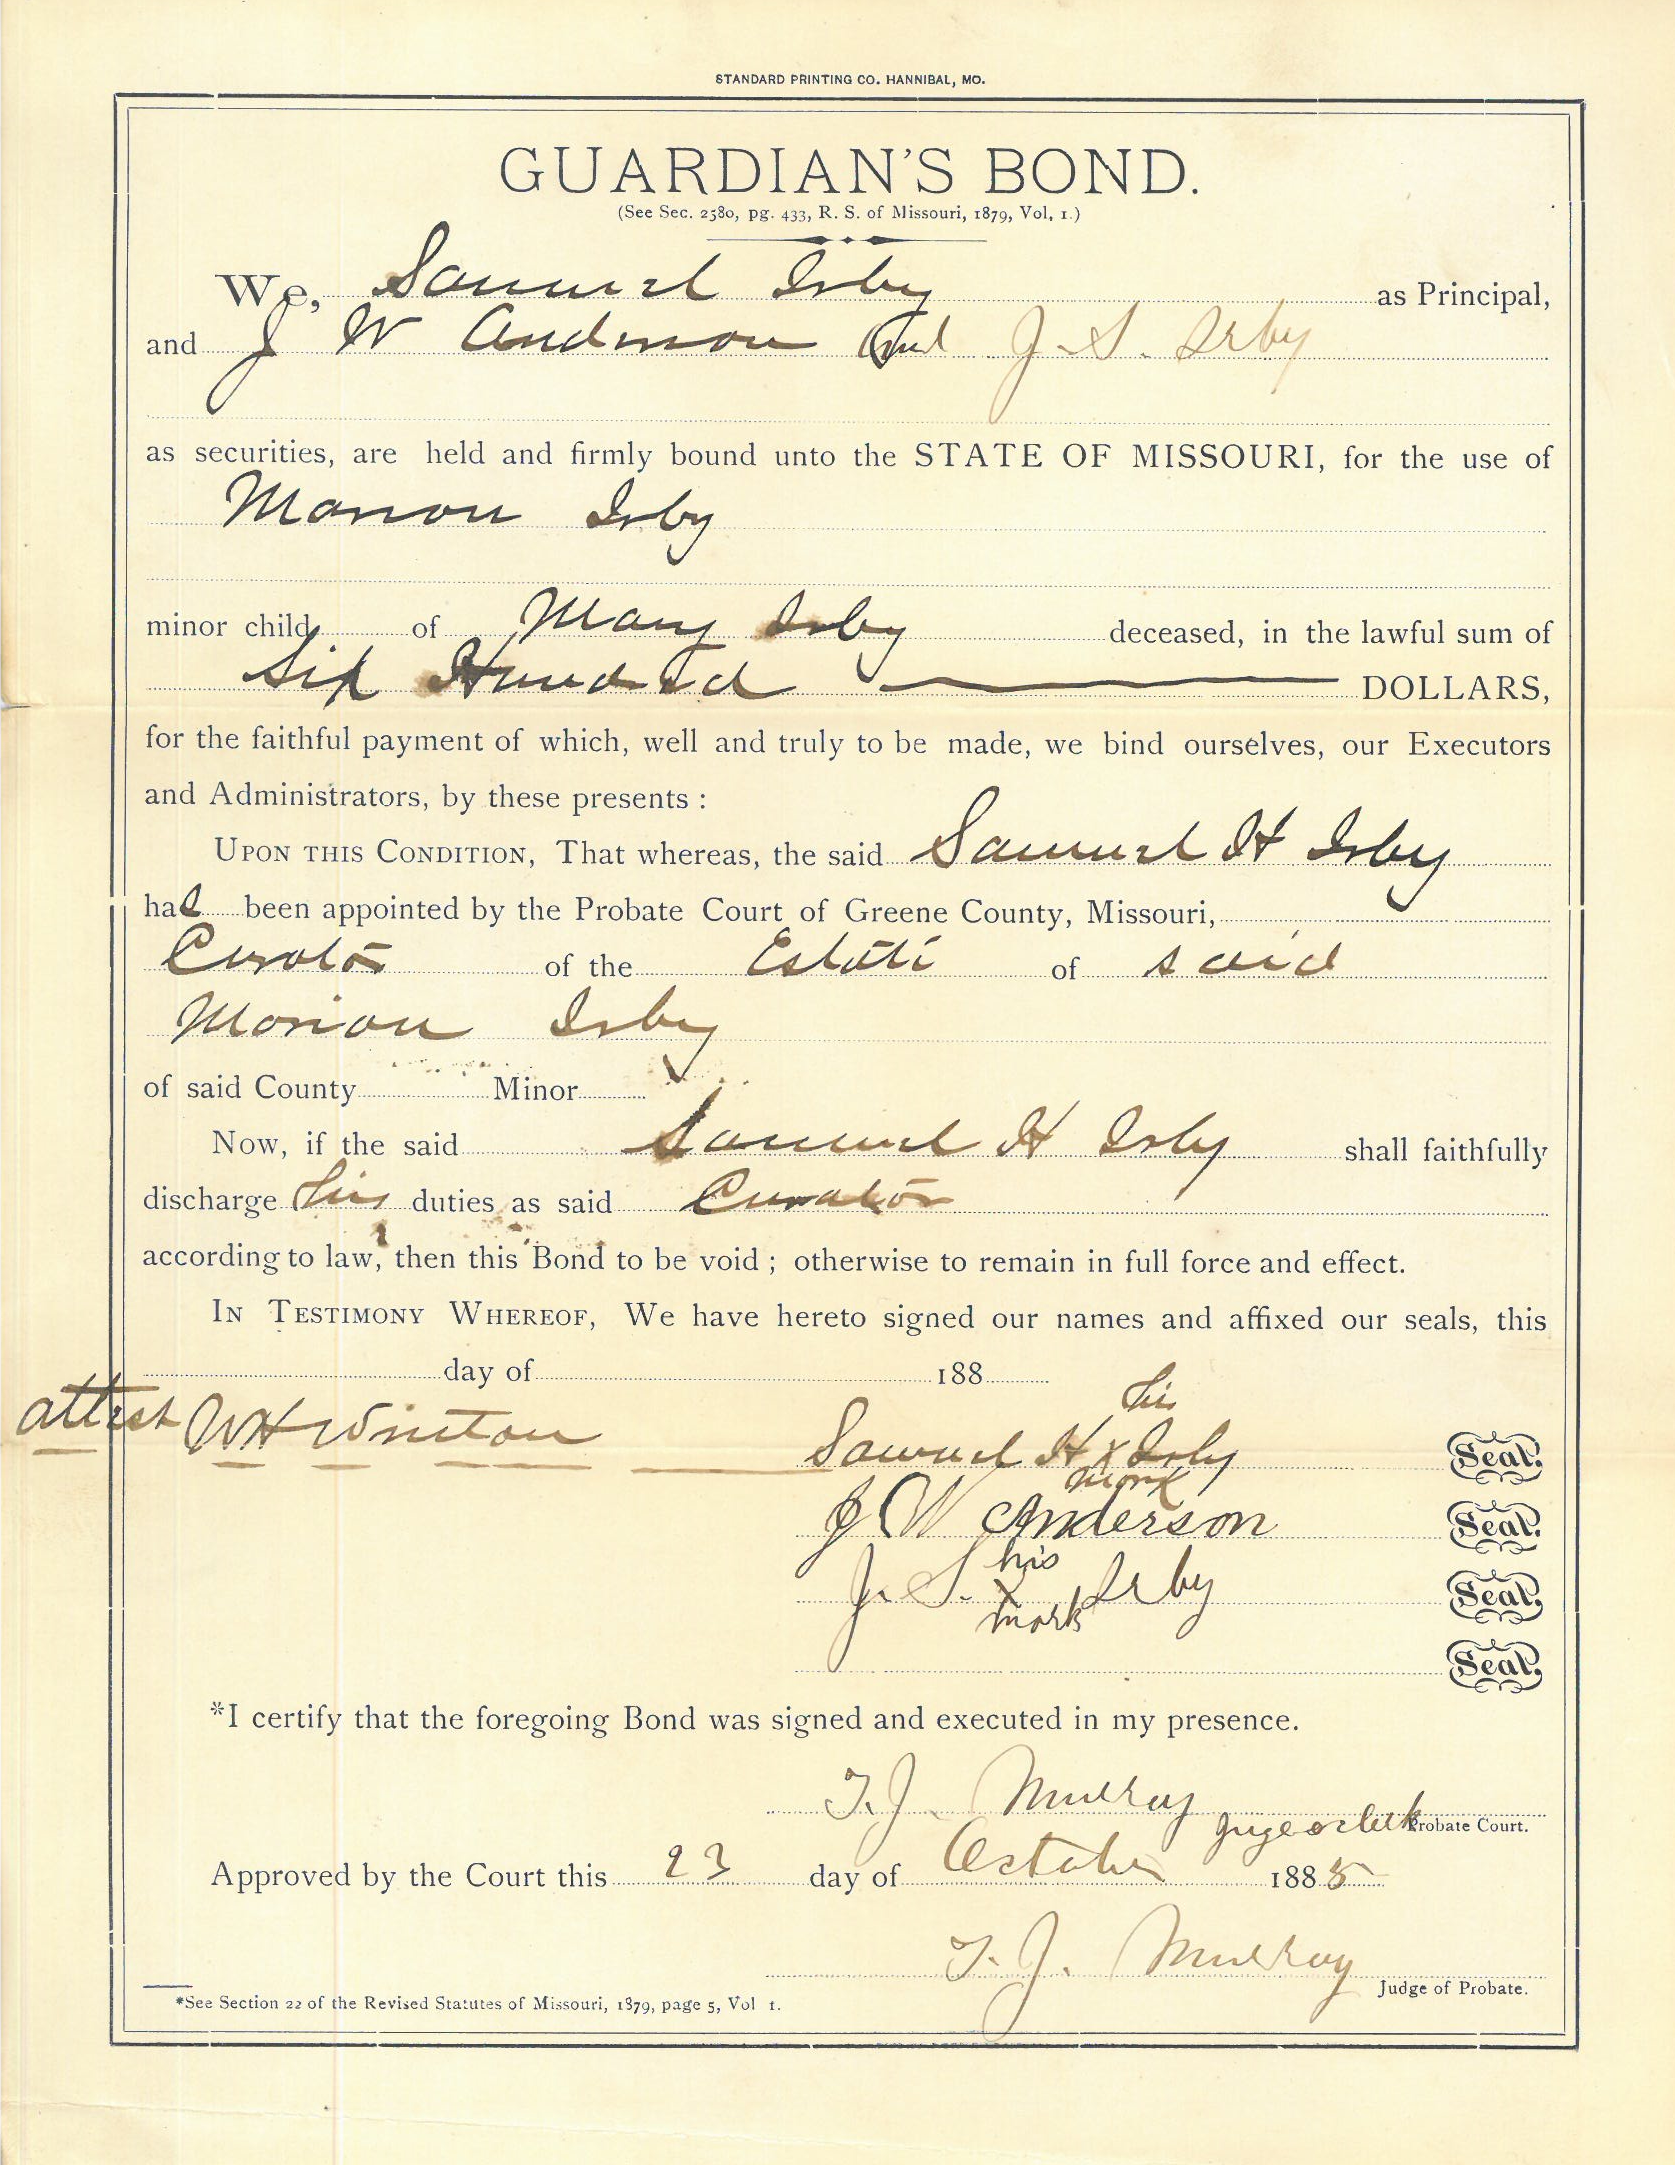 STANDARD PRINTING CO. HANNIBAL, MO.
GUARDIAN'S BOND.
(See Sec. 2580, pg. 433, R. S. of Missouri, 1879, Vol, 1.)
We, Samuel Irby as Principal,
and J W Anderson and J. S. Irby
as securities, are held and firmly bound unto the STATE OF MISSOURI, for the use of
Marion Irby
minor child of Mary Irby deceased, in the lawful sum of
Six Hundred DOLLARS,
for the faithful payment of which, well and truly to be made, we bind ourselves, our Executors
and Administrators, by these presents :
UPON THIS CONDITION, That whereas, the said Samuel H Irby
has been appointed by the Probate Court of Greene County, Missouri,
Curator of the Estate of said
Marion Irby
of said County Minor
Now, if the said Samuel H Irby shall faithfully
discharge his duties as said Curator
according to law, then this Bond to be void ; otherwise to remain in full force and effect.
IN TESTIMONY WHEREOF, We have hereto signed our names and affixed our seals, this
day of 188
his
attest W H Winton Samuel H x Irby Seal.
mark
J W Anderson Seal.
his
J. S. x Irby Seal.
mark
Seal.
*I certify that the foregoing Bond was signed and executed in my presence.
T. J. Murray
Probate Court.
Approved by the Court this 23 day of October 1885
T. J. Murray
Judge of Probate.
*See Section 22 of the Revised Statutes of Missouri, 1879, page 5, Vol 1.